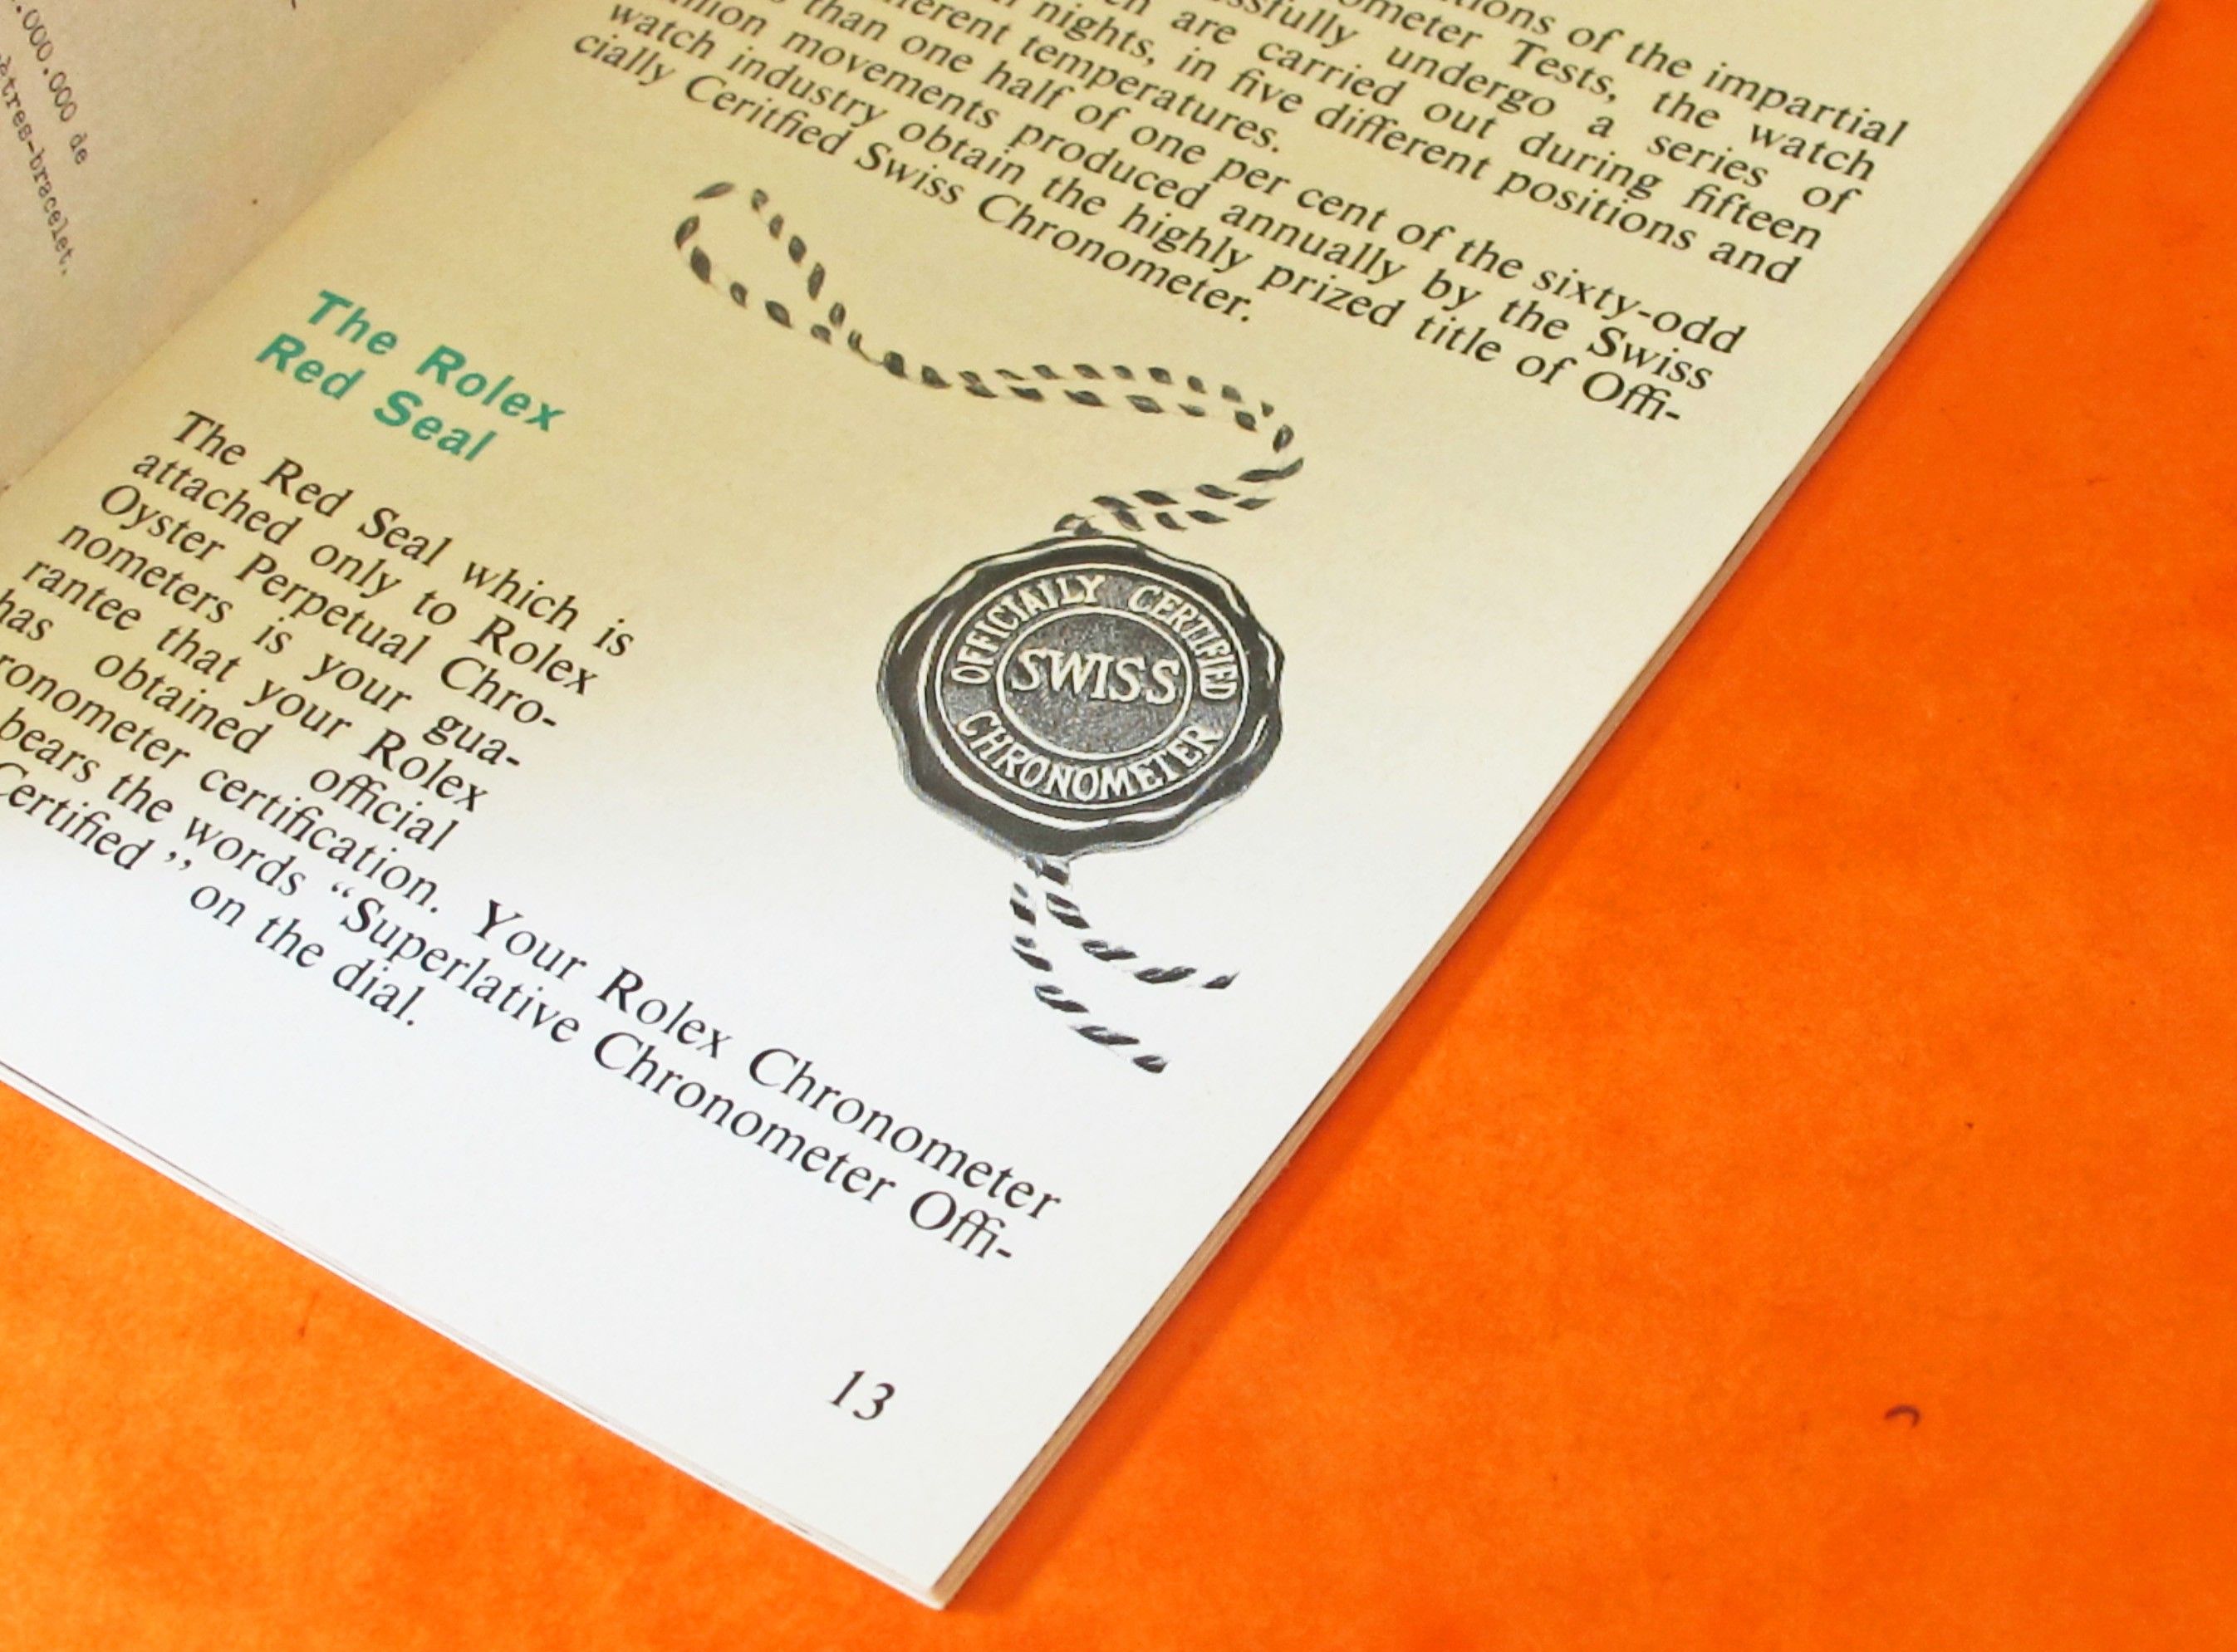 .000.000 de
tres-bracelet.
tions of the impartial
ometer Tests, the watch
ssfully undergo a series of
are carried out during fifteen
nights, in five different positions and
temperatures.
than one half of one per cent of the sixty-odd
movements produced annually by the Swiss
watch industry obtain the highly prized title of Offi-
cially Ceritfied Swiss Chronometer.
The Rolex
Red Seal
The Red Seal which is
attached only to Rolex
Oyster Perpetual Chro-
nometers is your gua-
rantee that your Rolex
has obtained official
ronometer certification. Your Rolex Chronometer
bears the words “Superlative Chronometer Offi-
Certified” on the dial.
OFFICIALLY CERTIFIED
SWISS
CHRONOMETER
13